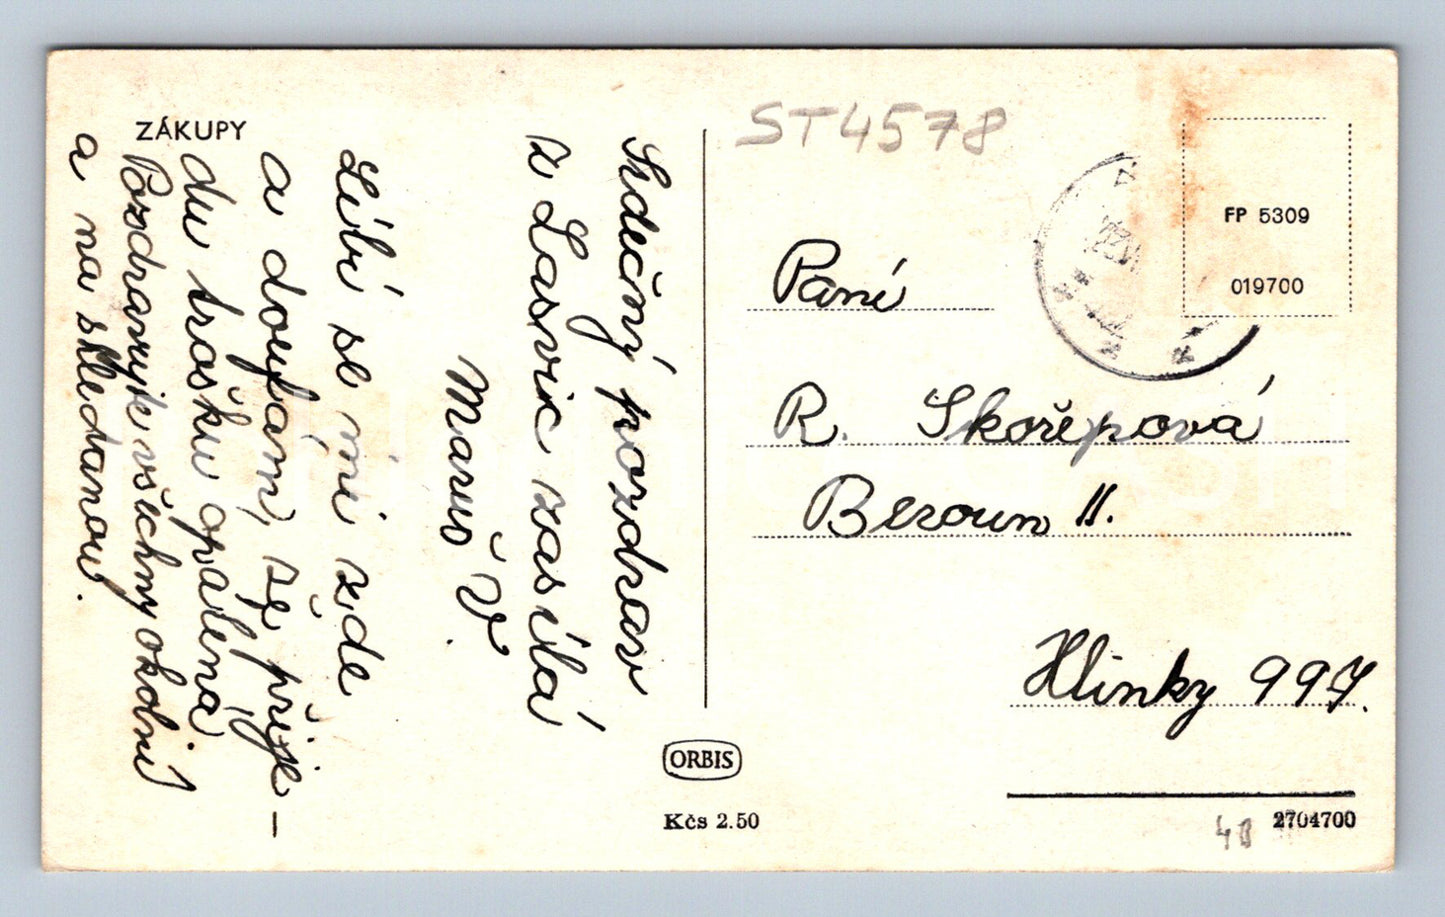 ZÁKUPY
Srdečný pozdrav
z Lasvic zasílá
Maruš V.
Líbí se mi zde
a doufám, že přije-
du trošku opálená
Pozdravujte všechny okolní
a na shledanou.
ST4578
FP 5309
019700
Paní
R. Skořepová
Beroun II.
Hlinky 997.
ORBIS
Kčs 2.50
2704700